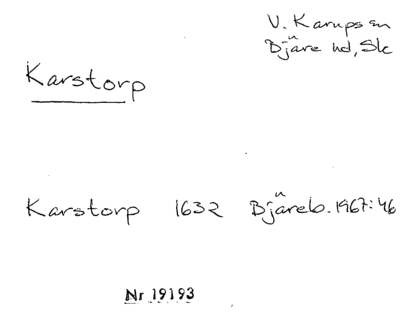 V. Karups sn
Bjäre hd, Sk
Karstorp
Karstorp 1632 Bjäreb. 1967:46
Nr 19193